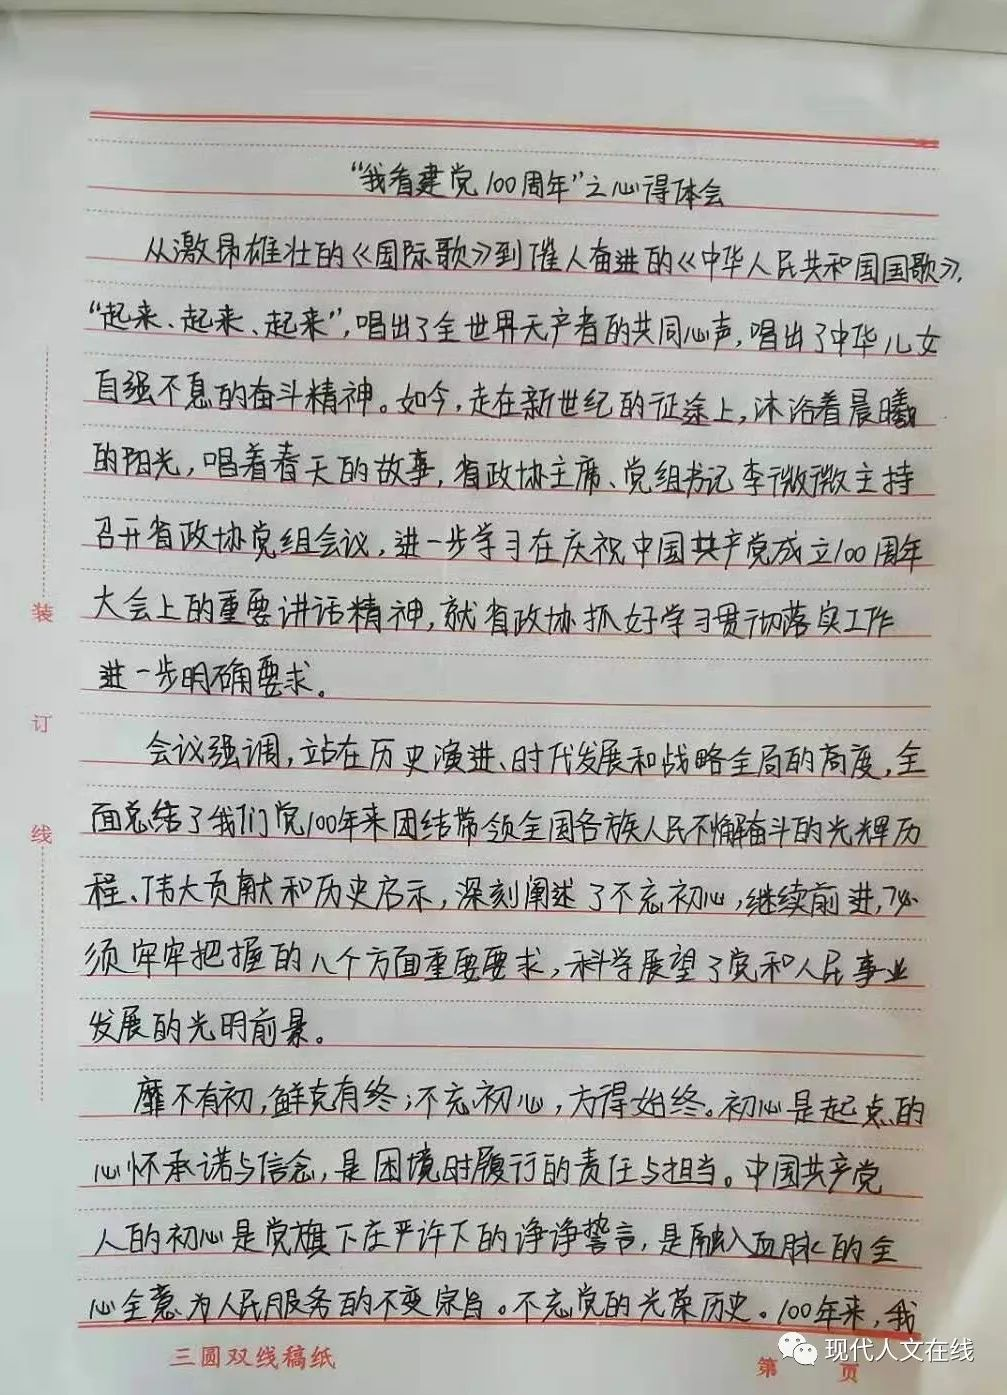 “我看建党100周年”之心得体会
从激昂雄壮的《国际歌》到催人奋进的《中华人民共和国国歌》，
“起来、起来、起来”，唱出了全世界无产者的共同心声，唱出了中华儿女
自强不息的奋斗精神。如今，走在新世纪的征途上，沐浴着晨曦
的阳光，唱着春天的故事，省政协主席、党组书记李微微主持
召开省政协党组会议，进一步学习在庆祝中国共产党成立100周年
大会上的重要讲话精神，就省政协抓好学习贯彻落实工作
进一步明确要求。
会议强调，站在历史演进、时代发展和战略全局的高度，全
面总结了我们党100年来团结带领全国各族人民不懈奋斗的光辉历
程、伟大贡献和历史启示，深刻阐述了不忘初心，继续前进，必
须牢牢把握的八个方面重要要求，科学展望了党和人民事业
发展的光明前景。
靡不有初，鲜克有终；不忘初心，方得始终。初心是起点的
心怀承诺与信念，是困境时履行的责任与担当。中国共产党
人的初心是党旗下庄严许下的诤诤誓言，是融入血脉的全
心全意为人民服务的不变宗旨。不忘党的光荣历史。100年来，我
装
订
线
三圆双线稿纸
第 页
现代人文在线